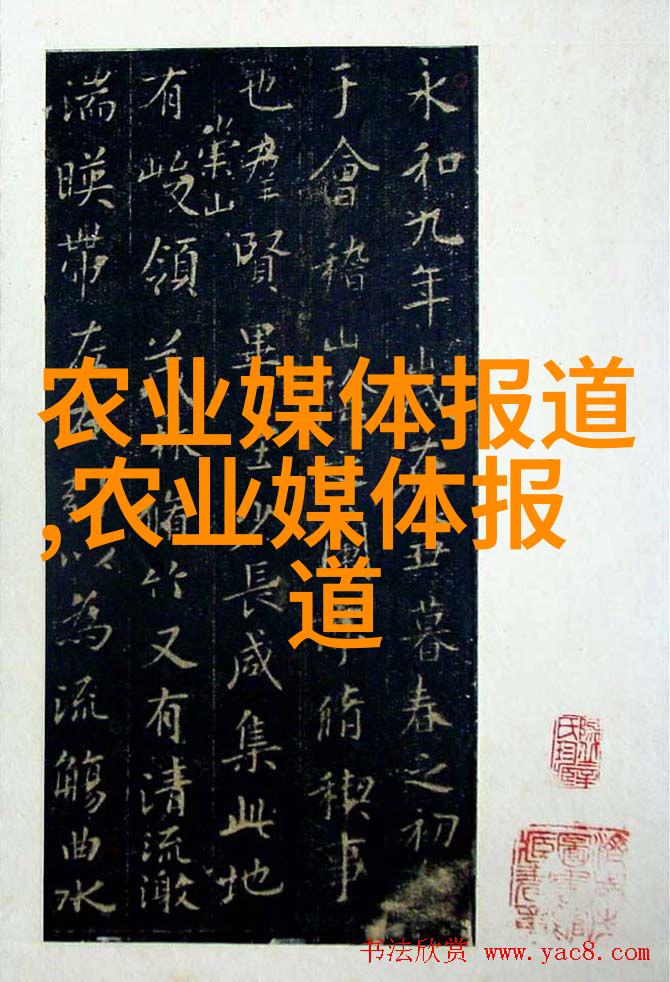 永和九年歲在丑暮春之初
于會稽山脩稧事
也羣賢畢至少長咸集此地
有崇山峻領茂林脩竹又有清流激
湍暎帶左以為流觴曲水
农业媒体报道
,农业媒体报
道
书法欣赏 www.yac8.com